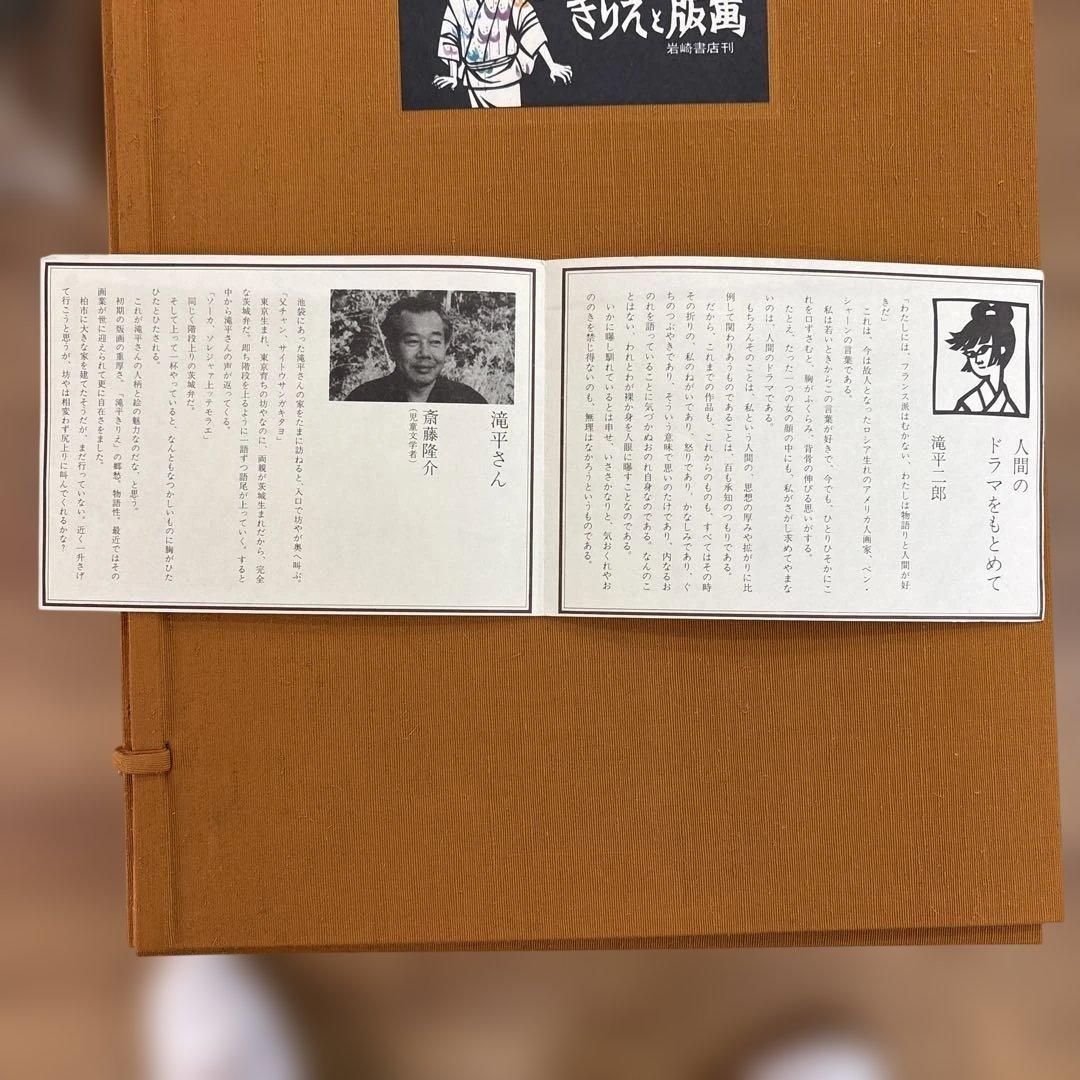 きりえと版画
岩崎書店刊
人間の
ドラマをもとめて
滝平二郎
「わたしには、フランス派はむかない、わたしは物語りと人間が好
きだ」
これは、今は故人となったロシア生れのアメリカ人画家、ベン・
シャーンの言葉である。
私は若いときからこの言葉が好きで、今でも、ひとりひそかにこ
れを口ずさむと、胸がふくらみ、背骨の伸びる思いがする。
たとえ、たった一つの女の顔の中にも、私がさがし求めてやまな
いのは、人間のドラマである。
もちろんそのことは、私という人間の、思想の厚みや拡がりに比
例して関わりあうものであることは、百も承知のつもりである。
だから、これまでの作品も、これからのものも、すべてはその時
その折りの、私のねがいであり、怒りであり、かなしみであり、ぐ
ちのつぶやきであり、そういう意味で思いのたけであり、内なるお
のれを語っていることに気づかぬおのれ自身なのである。なんのこ
とはない、われとわが裸か身を人眼に曝すことなのである。
いかに曝し馴れているとは申せ、いささかなりと、気おくれやお
ののきを禁じ得ないのも、無理はなかろうというものである。
滝平さん
斎藤隆介
(児童文学者)
池袋にあった滝平さんの家をたまに訪ねると、入口で坊やが奥へ叫ぶ。
「父チャン、サイトウサンガキタヨ」
東京生まれ、東京育ちの坊やなのに、両親が茨城生まれだから、完全
な茨城弁だ。即ち階段を上るように一語ずつ語尾が上っていく。すると
中から滝平さんの声が返ってくる。
「ソーカ、ソレジャァ上ッテモラエ」
同じく階段上りの茨城弁だ。
そして上って一杯やっていると、なんともなつかしいものに胸がひた
ひたとひたされる。
これが滝平さんの人柄と絵の魅力なのだな、と思う。
初期の版画の重厚さ。「滝平きりえ」の郷愁。物語性。最近ではその
画業が世に迎えられて更に自在さをました。
柏市に大きな家を建てたそうだが、まだ行っていない。近く一升さげ
て行こうと思うが、坊やは相変わらず尻上りに叫んでくれるかな？